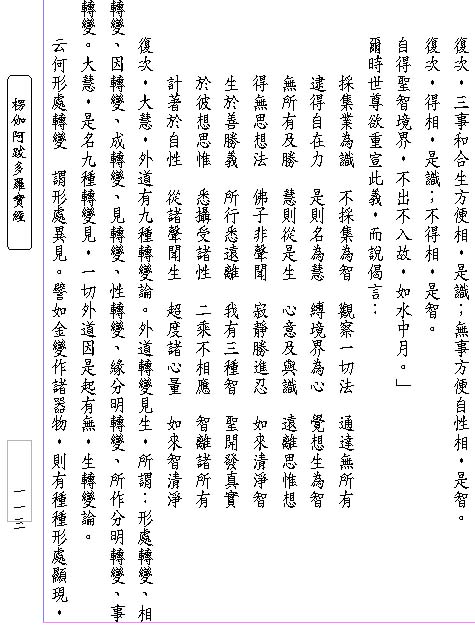 復次，三事和合生方便相，是識；無事方便自性相，是智。
復次，得相，是識；不得相，是智。
自得聖智境界，不出不入故，如水中月。」
爾時世尊欲重宣此義，而說偈言：
採集業為識　不採集為智　觀察一切法　通達無所有
逮得自在力　是則名為慧　縛境界為心　覺想生為智
無所有及勝　慧則從是生　心意及與識　遠離思惟想
得無思想法　佛子非聲聞　寂靜勝進忍　如來清淨智
生於善勝義　所行悉遠離　我有三種智　聖開發真實
於彼想思惟　悉攝受諸性　二乘不相應　智離諸所有
計著於自性　從諸聲聞生　超度諸心量　如來智清淨
復次，大慧，外道有九種轉變論。外道轉變見生，所謂：形處轉變、相
轉變、因轉變、成轉變、見轉變、性轉變、緣分明轉變、所作分明轉變、事
轉變。大慧，是名九種轉變見，一切外道因是起有無，生轉變論。
云何形處轉變　謂形處異見。譬如金變作諸器物，則有種種形處顯現，
楞伽阿跋多羅寶經
一一三